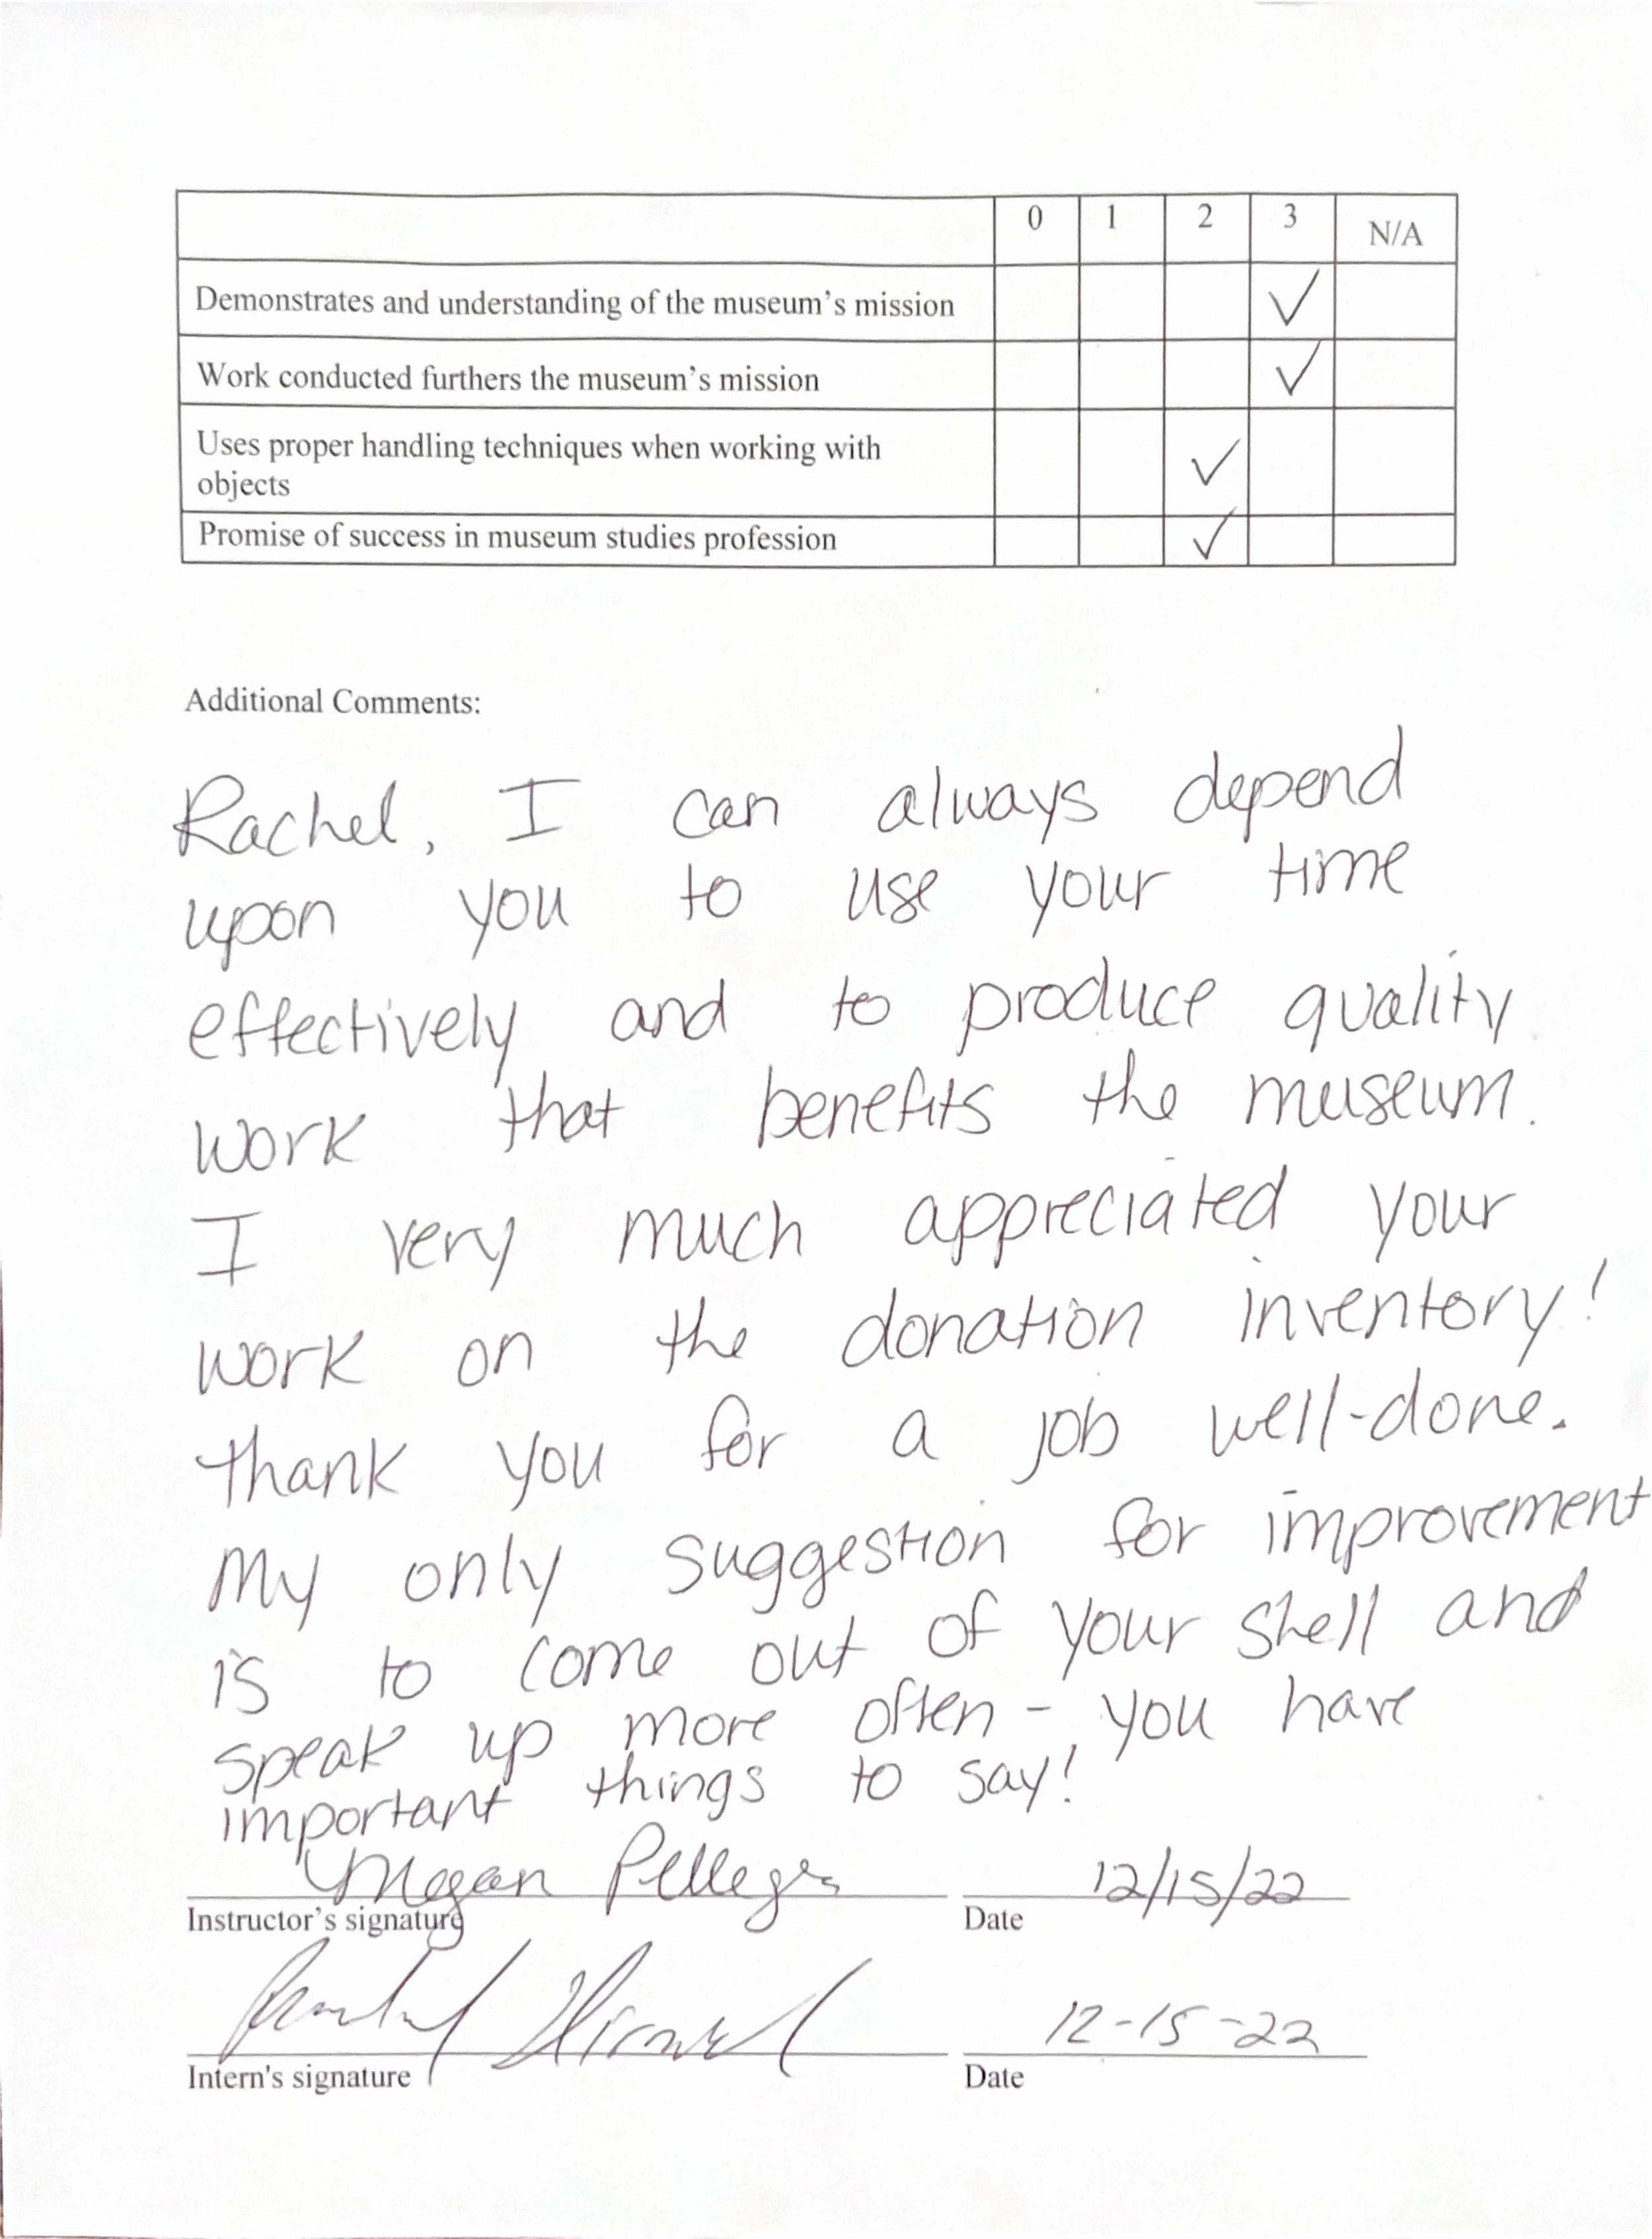 0 1 2 3 N/A
Demonstrates and understanding of the museum's mission ✓
Work conducted furthers the museum's mission ✓
Uses proper handling techniques when working with
objects ✓
Promise of success in museum studies profession ✓
Additional Comments:
Rachel, I can always depend
upon you to use your time
effectively and to produce quality
work that benefits the museum.
I very much appreciated your
work on the donation inventory!
Thank you for a job well-done.
My only suggestion for improvement
is to come out of your shell and
speak up more often - you have
important things to say!
Megan 12/15/22
Instructor's signature Date
12-15-22
Intern's signature Date